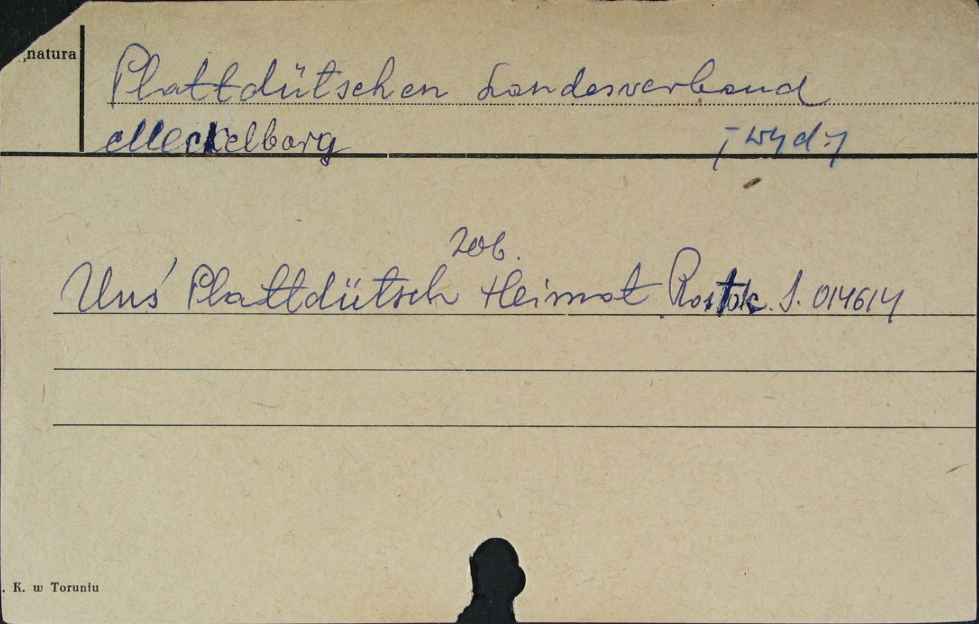 natura
Plattdütschen Landesverband
Meckelborg [wyd.]
zob.
Uns' Plattdütsch Heimat Rostok. S. 014614
. K. w Toruniu